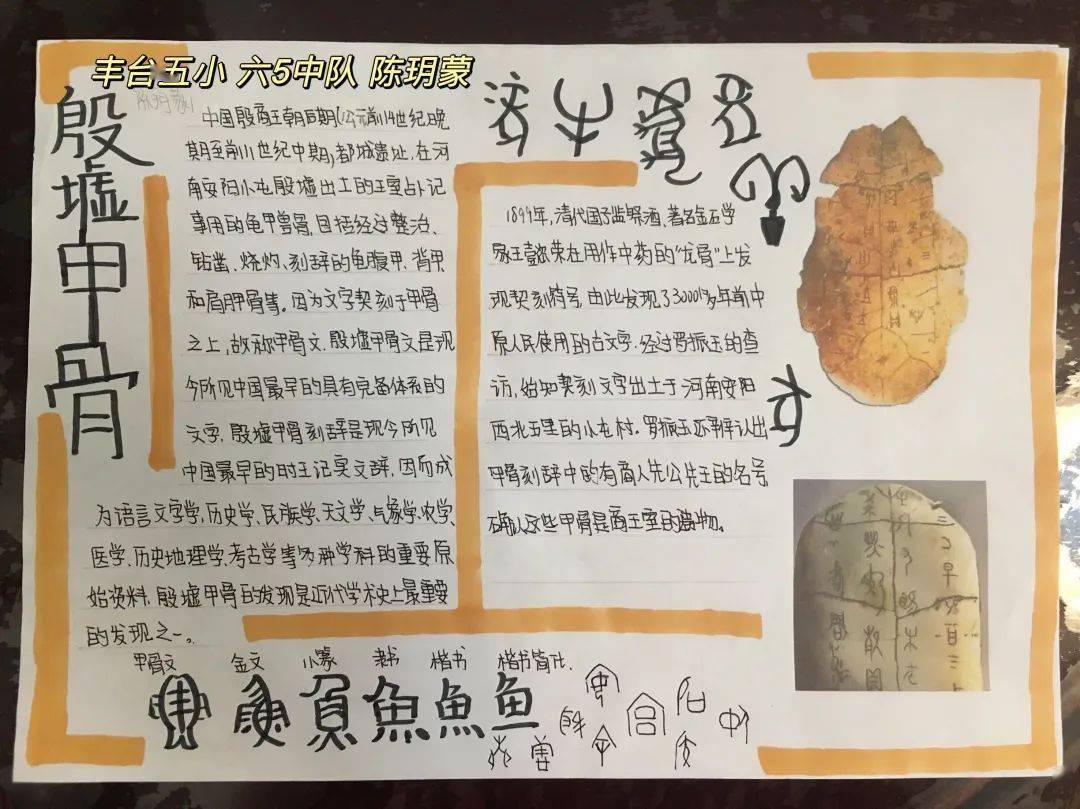 丰台五小 六5中队 陈玥蒙
陈玥蒙
殷墟甲骨
中国殷商王朝后期(公元前14世纪晚
期至前11世纪中期)都城遗址,在河
南安阳小屯殷墟出土的王室占卜记
事用的龟甲兽骨,包括经过整治、
钻凿、烧灼、刻辞的龟腹甲、背甲
和肩胛骨等。因为文字契刻于甲骨
之上,故称甲骨文.殷墟甲骨文是现
今所见中国最早的具有完备体系的
文字,殷墟甲骨刻辞是现今所见
中国最早的时王记实文辞,因而成
为语言文字学,历史学、民族学、天文学、气象学、农学、
医学、历史地理学、考古学等多种学科的重要原
始资料,殷墟甲骨的发现是近代学术史上最重要
的发现之一。
1899年,清代国子监祭酒、著名金石学
家王懿荣在用作中药的“龙骨”上发
现契刻符号,由此发现了3000多年前中
原人民使用的古文字.经过罗振玉的查
访,始知契刻文字出土于河南安阳
西北五里的小屯村.罗振玉还释认出
甲骨刻辞中的有商人先公先王的名号
确认这些甲骨是商王室的遗物。
甲骨文 金文 小篆 隶书 楷书 楷书简社.
魚 魚 鱼